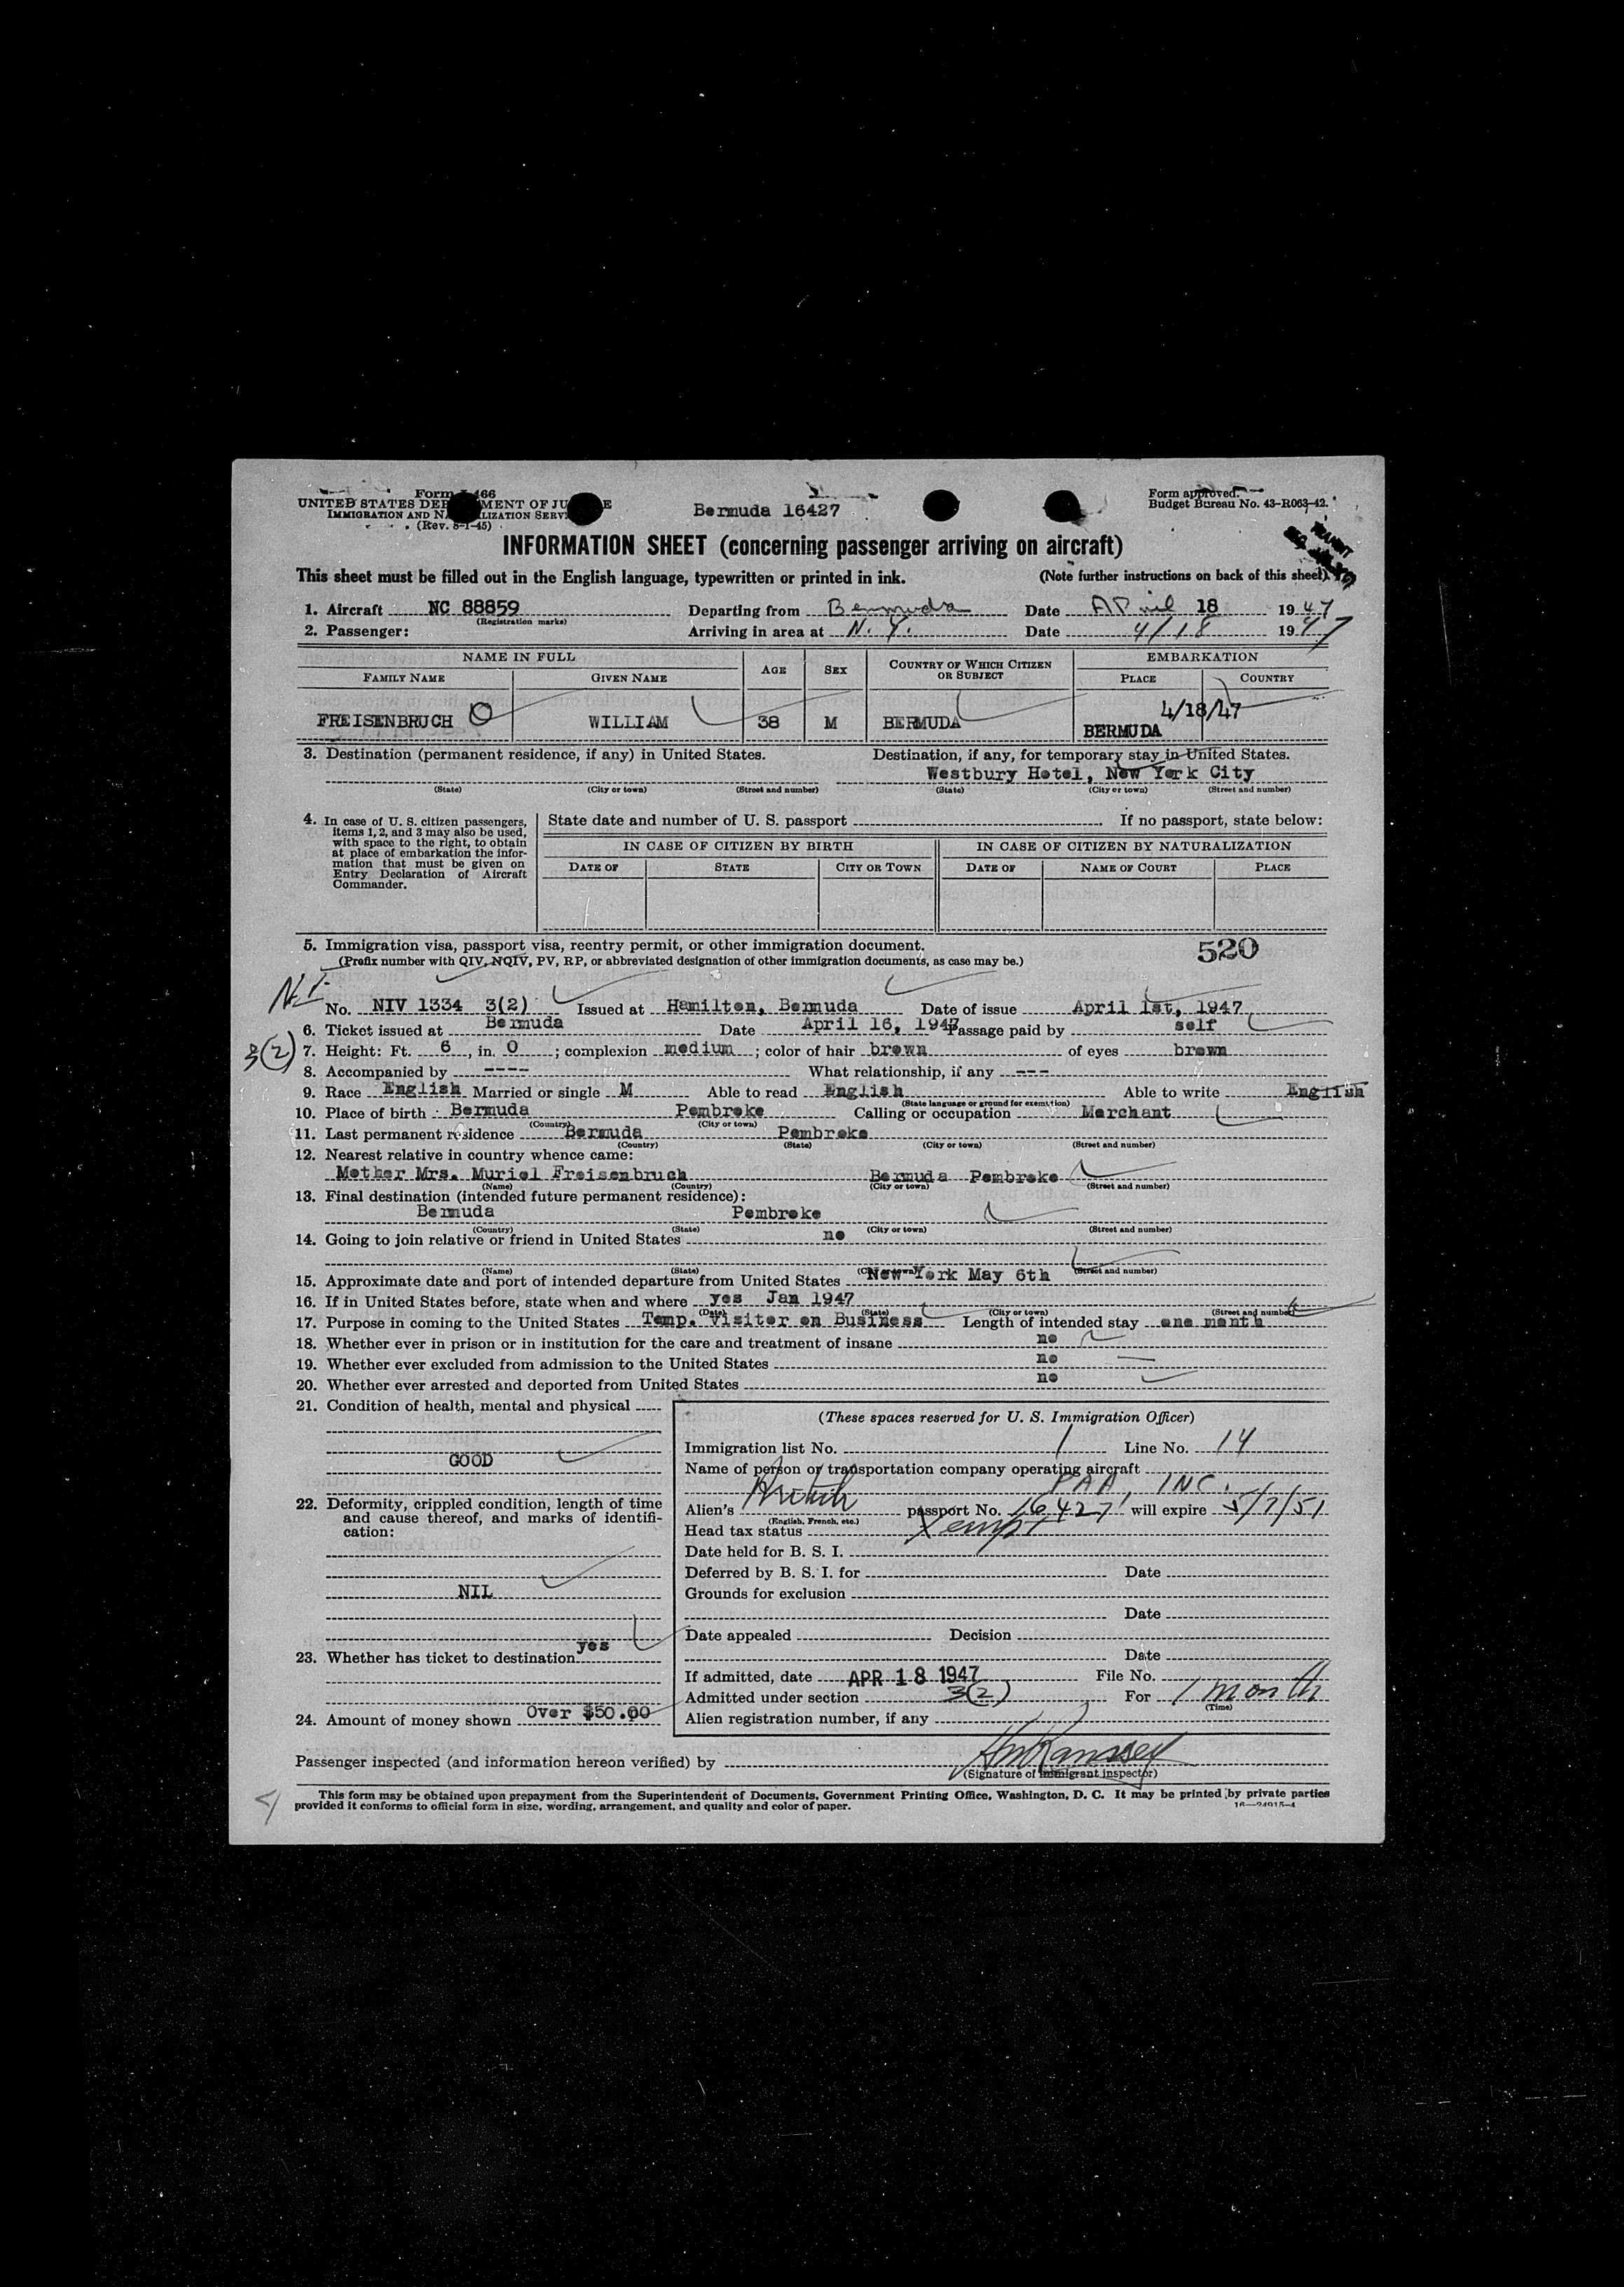 Form I-466
UNITED STATES DEPARTMENT OF JUSTICE
IMMIGRATION AND NATURALIZATION SERVICE
(Rev. 8-1-45)
Bermuda 16427
Form approved.
Budget Bureau No. 43-R063-42.
INFORMATION SHEET (concerning passenger arriving on aircraft)
This sheet must be filled out in the English language, typewritten or printed in ink. (Note further instructions on back of this sheet)
1. Aircraft NC 88859 Departing from Bermuda Date April 18 1947
(Registration marks)
2. Passenger: Arriving in area at N. Y. Date 4/18 1947
NAME IN FULL AGE SEX COUNTRY OF WHICH CITIZEN OR SUBJECT EMBARKATION
FAMILY NAME GIVEN NAME PLACE COUNTRY
4/18/47
FREISENBRUCH WILLIAM 38 M BERMUDA BERMUDA
3. Destination (permanent residence, if any) in United States. Destination, if any, for temporary stay in United States.
Westbury Hotel, New York City
(State) (City or town) (Street and number) (State) (City or town) (Street and number)
4. In case of U. S. citizen passengers,
items 1, 2, and 3 may also be used,
with space to the right, to obtain
at place of embarkation the infor-
mation that must be given on
Entry Declaration of Aircraft
Commander.
State date and number of U. S. passport If no passport, state below:
IN CASE OF CITIZEN BY BIRTH IN CASE OF CITIZEN BY NATURALIZATION
DATE OF STATE CITY OR TOWN DATE OF NAME OF COURT PLACE
5. Immigration visa, passport visa, reentry permit, or other immigration document. 520
(Prefix number with QIV, NQIV, PV, RP, or abbreviated designation of other immigration documents, as case may be.)
No. NIV 1334 3(2) Issued at Hamilton, Bermuda Date of issue April 1st, 1947
6. Ticket issued at Bermuda Date April 16, 1947 Passage paid by self
3(2)
7. Height: Ft. 6, in. 0; complexion medium; color of hair brown of eyes brown
8. Accompanied by ---- What relationship, if any ---
9. Race English Married or single M Able to read English Able to write English
(State language or ground for exemption)
10. Place of birth Bermuda Pembroke Calling or occupation Merchant
(Country) (City or town)
11. Last permanent residence Bermuda Pembroke
(Country) (State) (City or town) (Street and number)
12. Nearest relative in country whence came:
Mother Mrs. Muriel Freisenbruch Bermuda Pembroke
(Name) (Country) (City or town) (Street and number)
13. Final destination (intended future permanent residence):
Bermuda Pembroke
(Country) (State) (City or town) (Street and number)
14. Going to join relative or friend in United States no
(Name) (State) (City or town) (Street and number)
15. Approximate date and port of intended departure from United States New York May 6th
16. If in United States before, state when and where yes Jan 1947
(Date) (State) (City or town) (Street and number)
17. Purpose in coming to the United States Temp. Visitor on Business Length of intended stay one month
18. Whether ever in prison or in institution for the care and treatment of insane no
19. Whether ever excluded from admission to the United States no
20. Whether ever arrested and deported from United States no
21. Condition of health, mental and physical
GOOD
22. Deformity, crippled condition, length of time
and cause thereof, and marks of identifi-
cation:
NIL
23. Whether has ticket to destination yes
24. Amount of money shown Over $50.00
(These spaces reserved for U. S. Immigration Officer)
Immigration list No. 1 Line No. 14
Name of person or transportation company operating aircraft
PAA, INC.
Alien's British passport No. 16427 will expire 5/7/51
(English, French, etc.)
Head tax status Xempt
Date held for B. S. I.
Deferred by B. S. I. for Date
Grounds for exclusion
Date
Date appealed Decision
Date
If admitted, date APR 18 1947 File No.
Admitted under section 3(2) For 1 month
(Time)
Alien registration number, if any
Passenger inspected (and information hereon verified) by
(Signature of immigrant inspector)
This form may be obtained upon prepayment from the Superintendent of Documents, Government Printing Office, Washington, D. C. It may be printed by private parties
provided it conforms to official form in size, wording, arrangement, and quality and color of paper.
16—24915-4